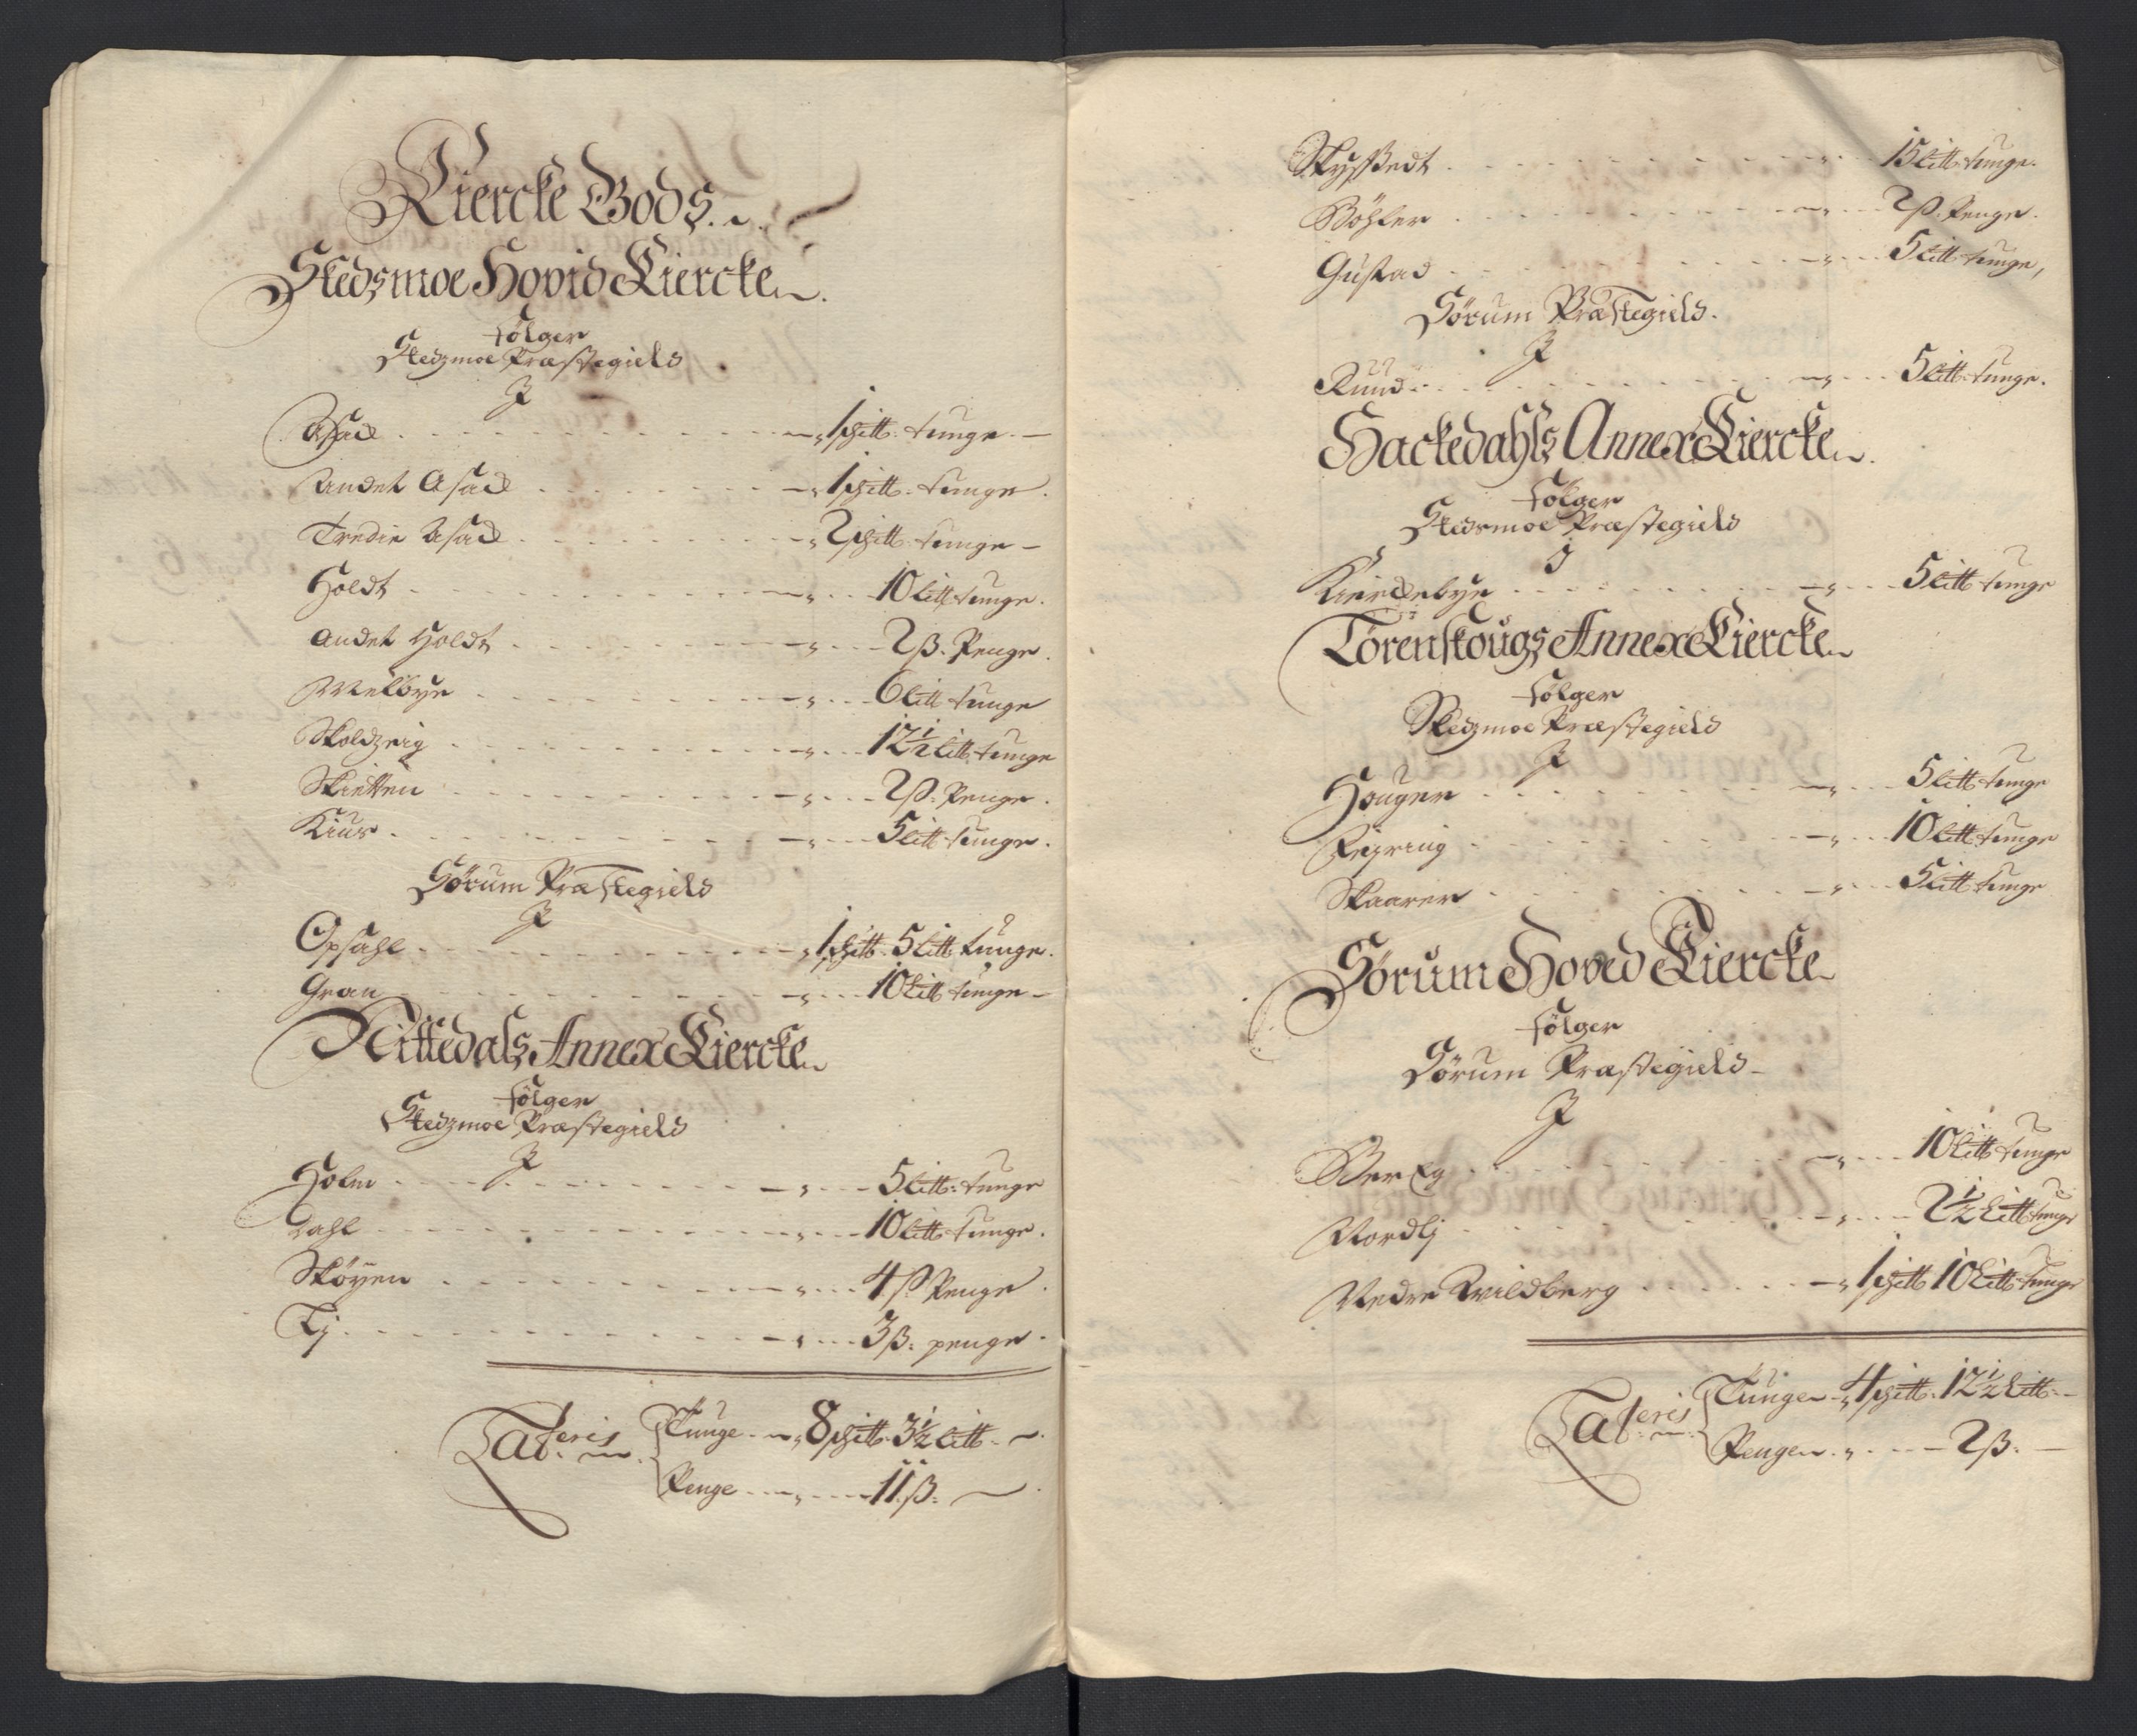 Kiercke Gods.
Skedsmoe Hovid Kiercke
følger
Skedzmoe Præstegield
J
Asack 1 schtt: tunge
Andet Asack 1 schtt: tunge
Tredie Asack 2 schtt: tunge
Holdt 10 litt: tunge
Andet Holdt 2 ß: Penge
Melbye 6 litt tunge
Skoldzrig 12½ litt: tunge
Skietten 2 ß: Penge
Kius 5 litt: tunge
Sørum Præstegield
J
Opsahl 1 schtt: 5 litt: tunge
Gran 10 litt: tunge
Nittedals Annex Kiercke
følger
Skedzmoe Præstegield
J
Holm 5 litt: tunge
Dahl 10 litt: tunge
Skøyen 4 ß Penge
Lj 3 ß: penge
Lateris Tunge 8 schtt: 3½ litt:
Penge 11 ß:
Skysstedt 15 litt: tunge
Böhler 2 ß: Penge
Gustad 5 litt: tunge
Sörum Præstegield
J
Ruud 5 litt: tunge
Hackedahls Annex Kiercke
følger
Skedsmoe Præstegield
J
Kierckebye 5 litt: tunge
Lørenskougs Annex Kiercke
følger
Skedzmoe Præstegield
J
Houger 5 litt: tunge
Fiepring 10 litt: tunge
Skaarer 5 litt: tunge
Sørum Hoved Kiercke
følger
Sørum Præstegield
J
Berg 10 litt: tunge
Nordlj 2½ litt: tunge
Nedre Wildberg 1 schtt: 10 litt: tunge
Lateris Tunge 4 schtt: 12½ litt:
Penge 2 ß: